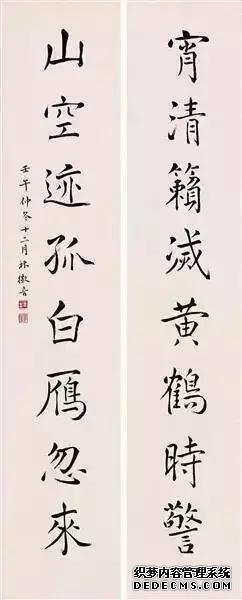 宵清籟滅黄鶴時警
山空迹孤白鴈忽來
壬午仲冬十二月林徽音
织梦内容管理系统
DEDECMS.COM